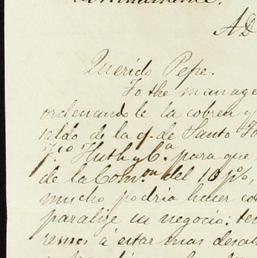 AD
Querido Pepe.
To the manage
ordenando le la cobren y
saldo de la q. de Santo To
Fco Huth y Ca. para que
de la Comon. del 10 p%,
mucho podria haber co
paralize un negocio: ten
remos á estar mas desa